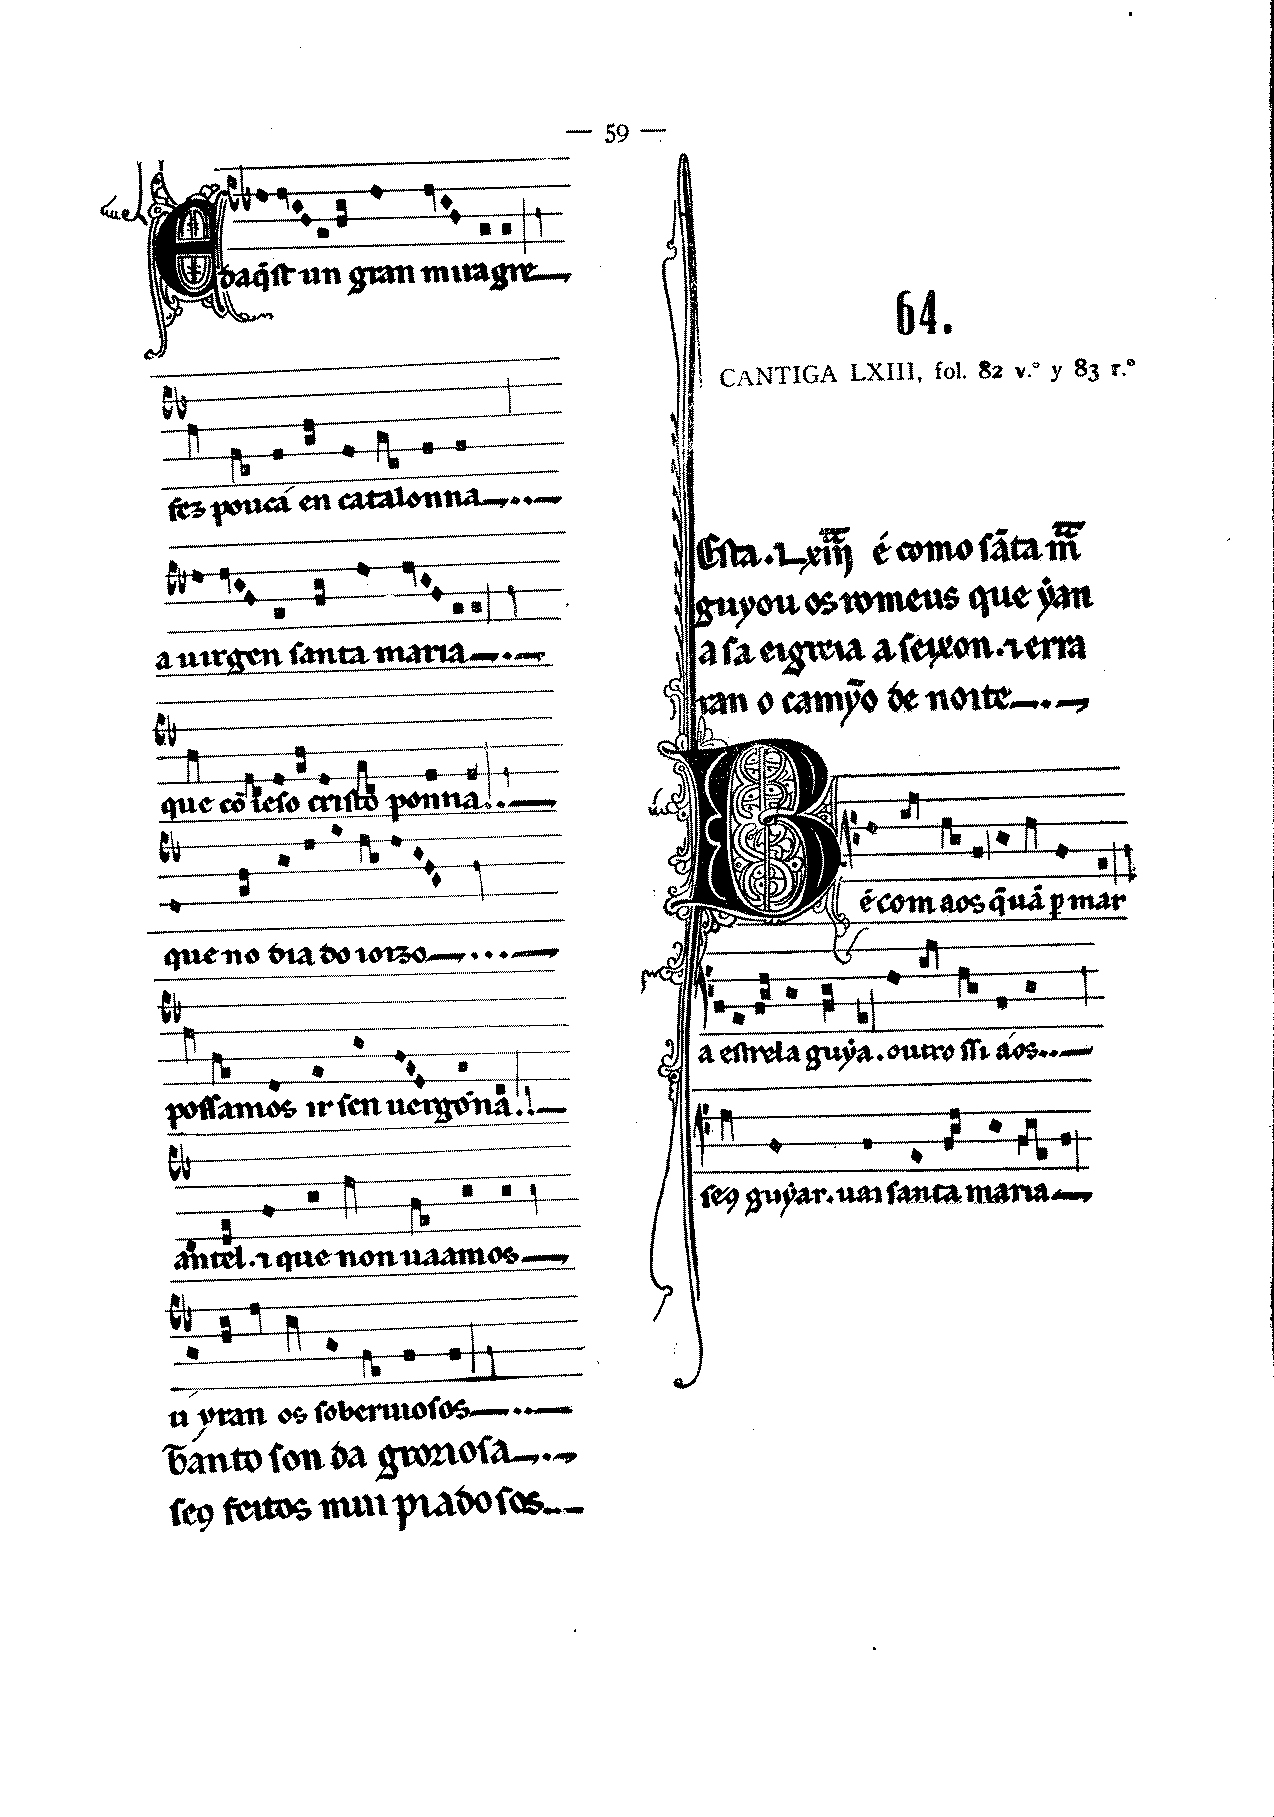 — 59 —
E daq̃st un gran miragre
fez poucá en catalonna
a uirgen santa maria
que cõ ieso cristo ponna
que no dia do ioizo
possamos ir sen uergonna
antel. ⁊ que non uaamos
u yran os soberuiosos
Quanto son da groriosa
seꝯ feitos mui piadosos
64.
CANTIGA LXIII, fol. 82 v.º y 83 r.º
Esta .Lxiii é como sãta m̃
guyou os romeus que ýan
a sa eigreia a seixon. ⁊ erra
ran o camỹo de noite
B
é com aos q̃ uã ꝑ mar
a estrela guýa. outro ssi aós
seꝯ guýar. uai santa maria